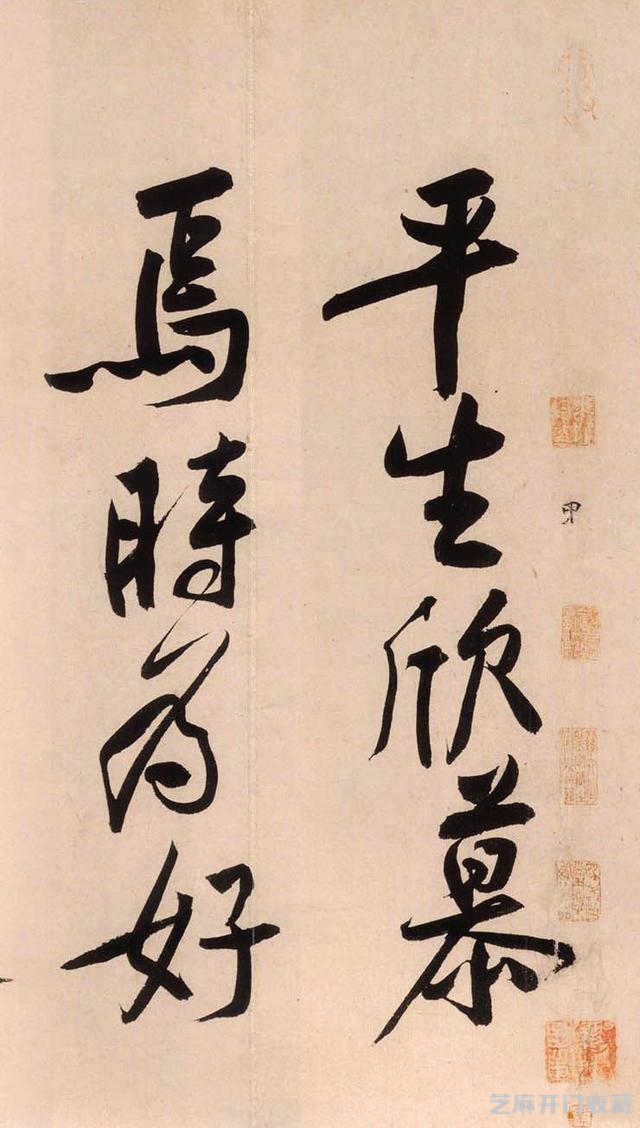 平生欣慕
焉時為好
甲
芝麻开门收藏